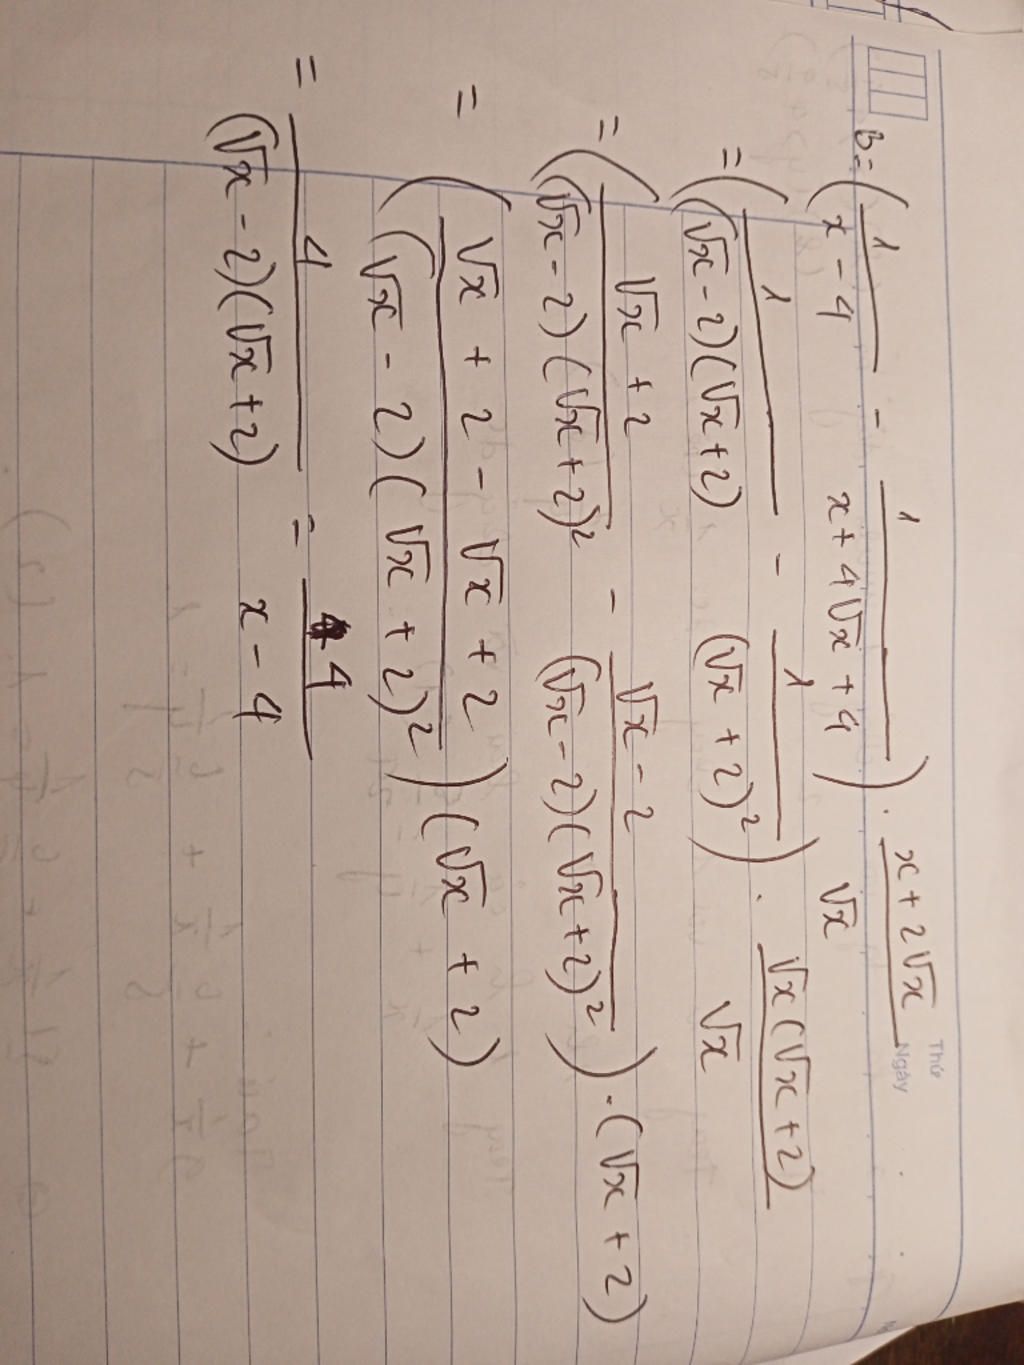 Thứ
Ngày
B = ( 1/(x - 4) - 1/(x + 4√x + 4) ) . (x + 2√x)/√x
= ( 1/((√x - 2)(√x + 2)) - 1/(√x + 2)² ) . √x(√x + 2)/√x
= ( (√x + 2)/((√x - 2)(√x + 2)²) - (√x - 2)/((√x - 2)(√x + 2)²) ) . (√x + 2)
= ( (√x + 2 - √x + 2)/((√x - 2)(√x + 2)²) ) (√x + 2)
= 4/((√x - 2)(√x + 2)) = 4/(x - 4)